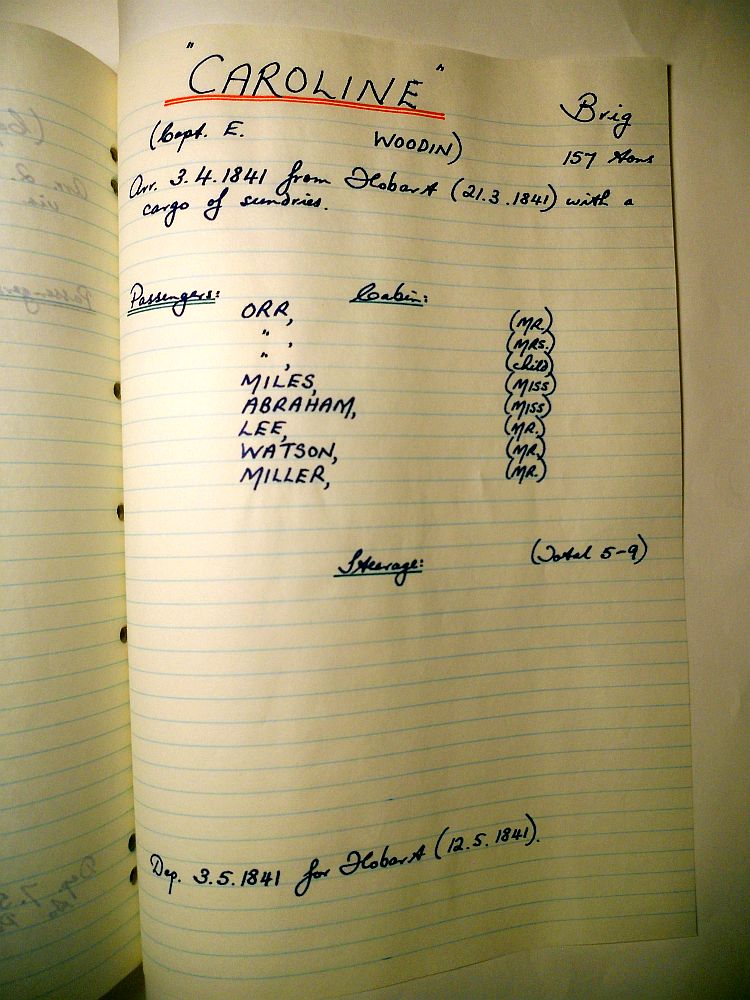 "CAROLINE"
Brig
(Capt. E. WOODIN)
157 tons
Arr. 3.4.1841 from Hobart (21.3.1841) with a
cargo of sundries.
Passengers: Cabin:
ORR, (MR.)
" , (MRS.)
" , (child)
MILES, (MISS)
ABRAHAM, (MISS)
LEE, (MR.)
WATSON, (MR.)
MILLER, (MR.)
Steerage: (Total 5-9)
Dep. 3.5.1841 for Hobart (12.5.1841).